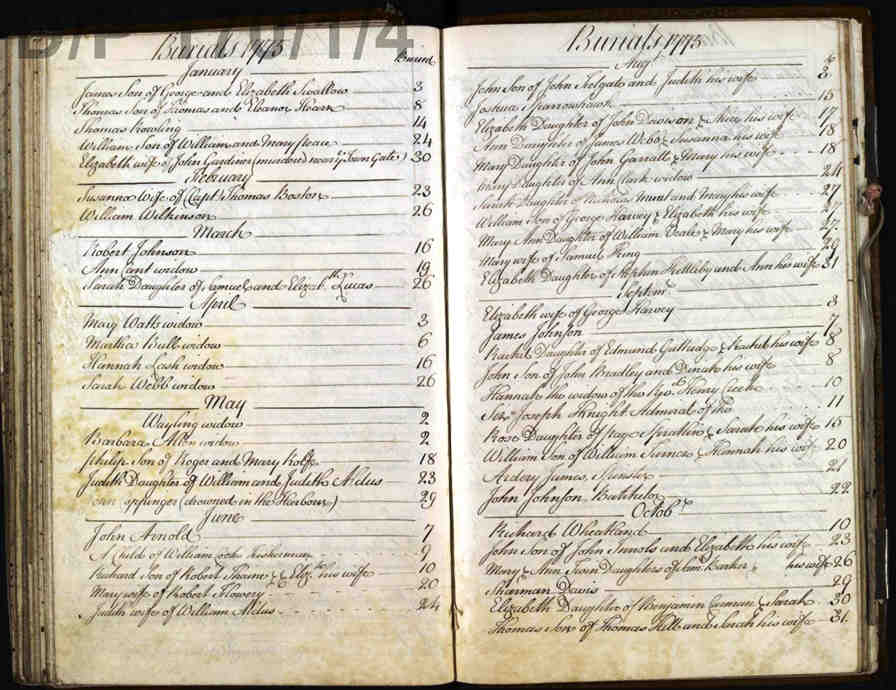 D/P 170/1/4
Burials 1775
Buried
January
James Son of George and Elizabeth Swallow 3
Thomas Son of Thomas and Eleanor Hearn 8
Thomas 14
William Son of William and Mary 24
Elizabeth wife of John Gardner (murdered near ye Town Gate) 30
February
Susanna Wife of (Capt) Thomas Boston 23
William Wilkinson 26
March
Robert Johnson 16
Ann Cant widow 19
Sarah Daughter of Samuel and Elizabth Lucas 26
April
Mary Watts widow 3
Martha Bull widow 6
Hannah Lash widow 16
Sarah Webb widow 26
May
Wayling widow 2
Barbara Allen widow 2
Philip Son of Roger and Mary Rolfe 18
Judith Daughter of William and Judith Aldus 23
(drowned in the Harbour) 29
June
John Arnold 7
A Child of William fisherman 9
Richard Son of Robert Thorne & Elizth his wife 10
Mary wife of Robert Flowery 20
Judith wife of William Aldus 24
Burials 1775
Augt
John Son of John and Judith his wife 3
Joshua Sparrowhawk 15
Elizabeth Daughter of John Dawson & his wife 17
Ann Daughter of James Webb & Susanna his wife 18
Mary Daughter of John Garratt & Mary his wife 18
Mary Daughter of Ann Clark widow 24
Sarah Daughter of Nicholas and Mary his wife 27
William Son of George Harvey & Elizabeth his wife 27
Mary Ann Daughter of William Veale & Mary his wife 27
Mary wife of Samuel King 29
Elizabeth Daughter of Stephen and Ann his wife 31
Septemr
Elizabeth wife of George Harvey 3
James Johnson 7
Rachel Daughter of Edmund Guttridge & Rachel his wife 8
John Son of John Bradley and Dinah his wife 8
Hannah the widow of the Revd Henry 10
Joseph Knight Admiral of the 11
Rose Daughter of Page & Sarah his wife 15
William Son of William Turner & Hannah his wife 20
James, Minister 21
John Johnson Batchelor 22
Octobr
Richard Wheatland 10
John Son of John and Elizabeth his wife 23
Mary & Ann Twin Daughters of Barker & his wife 26
Davis 29
Elizabeth Daughter of Benjamin & Sarah 30
Thomas Son of Thomas Hill and Sarah his wife 31